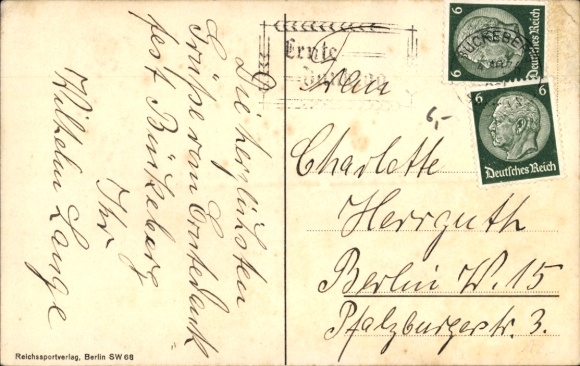 Die herzlichsten
Grüße vom Erntedank
fest Bückeberg
Ihr
Wilhelm Lange
Reichssportverlag, Berlin SW 68
Ernte
6
Deutsches Reich
BÜCKEBERG
6
6
Deutsches Reich
6,-
Frau
Charlotte
Herrguth
Berlin W. 15
Pfalzburgerstr. 3.